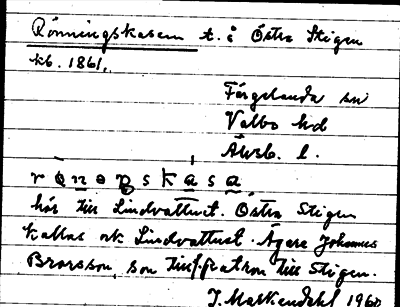 Rönningskasen t. i Östra Stigen
kb. 1861.
Färgelanda sn
Valbo hd
Älvsb. l.
r ö n e ŋ s k a s a
hör till Lindvattnet. Östra Stigen
kallas ock Lindvattnet. Ägare Johannes
Brorsson, son till patron till Stigen.
1960